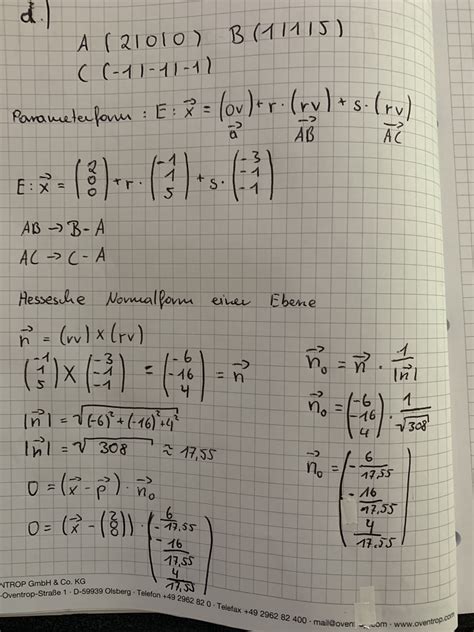 d.)
A (2|0|0) B (1|1|5)
C (-1|-1|-1)
Parameterform : E: x⃗ = (ov) + r · (rv) + s · (rv)
a⃗ AB⃗ AC⃗
E: x⃗ = (2 0 0) + r · (-1 1 5) + s · (-3 -1 -1)
AB → B - A
AC → C - A
Hessesche Normalform einer Ebene
n⃗ = (rv) × (rv)
(-1 1 5) × (-3 -1 -1) = (-6 -16 4) = n⃗
|n⃗| = √(-6)² + (-16)² + 4²
|n⃗| = √308 ≈ 17,55
0 = (x⃗ - p⃗) · n⃗₀
0 = (x⃗ - (2 0 0)) · (-6/17,55 -16/17,55 4/17,55)
n⃗₀ = n⃗ · 1/|n⃗|
n⃗₀ = (-6 -16 4) · 1/√308
n⃗₀ = (-6/17,55 -16/17,55 4/17,55)
NTROP GmbH & Co. KG
-Oventrop-Straße 1 · D-59939 Olsberg · Telefon +49 2962 82 0 · Telefax +49 2962 82 400 · mail@oven .com · www.oventrop.com